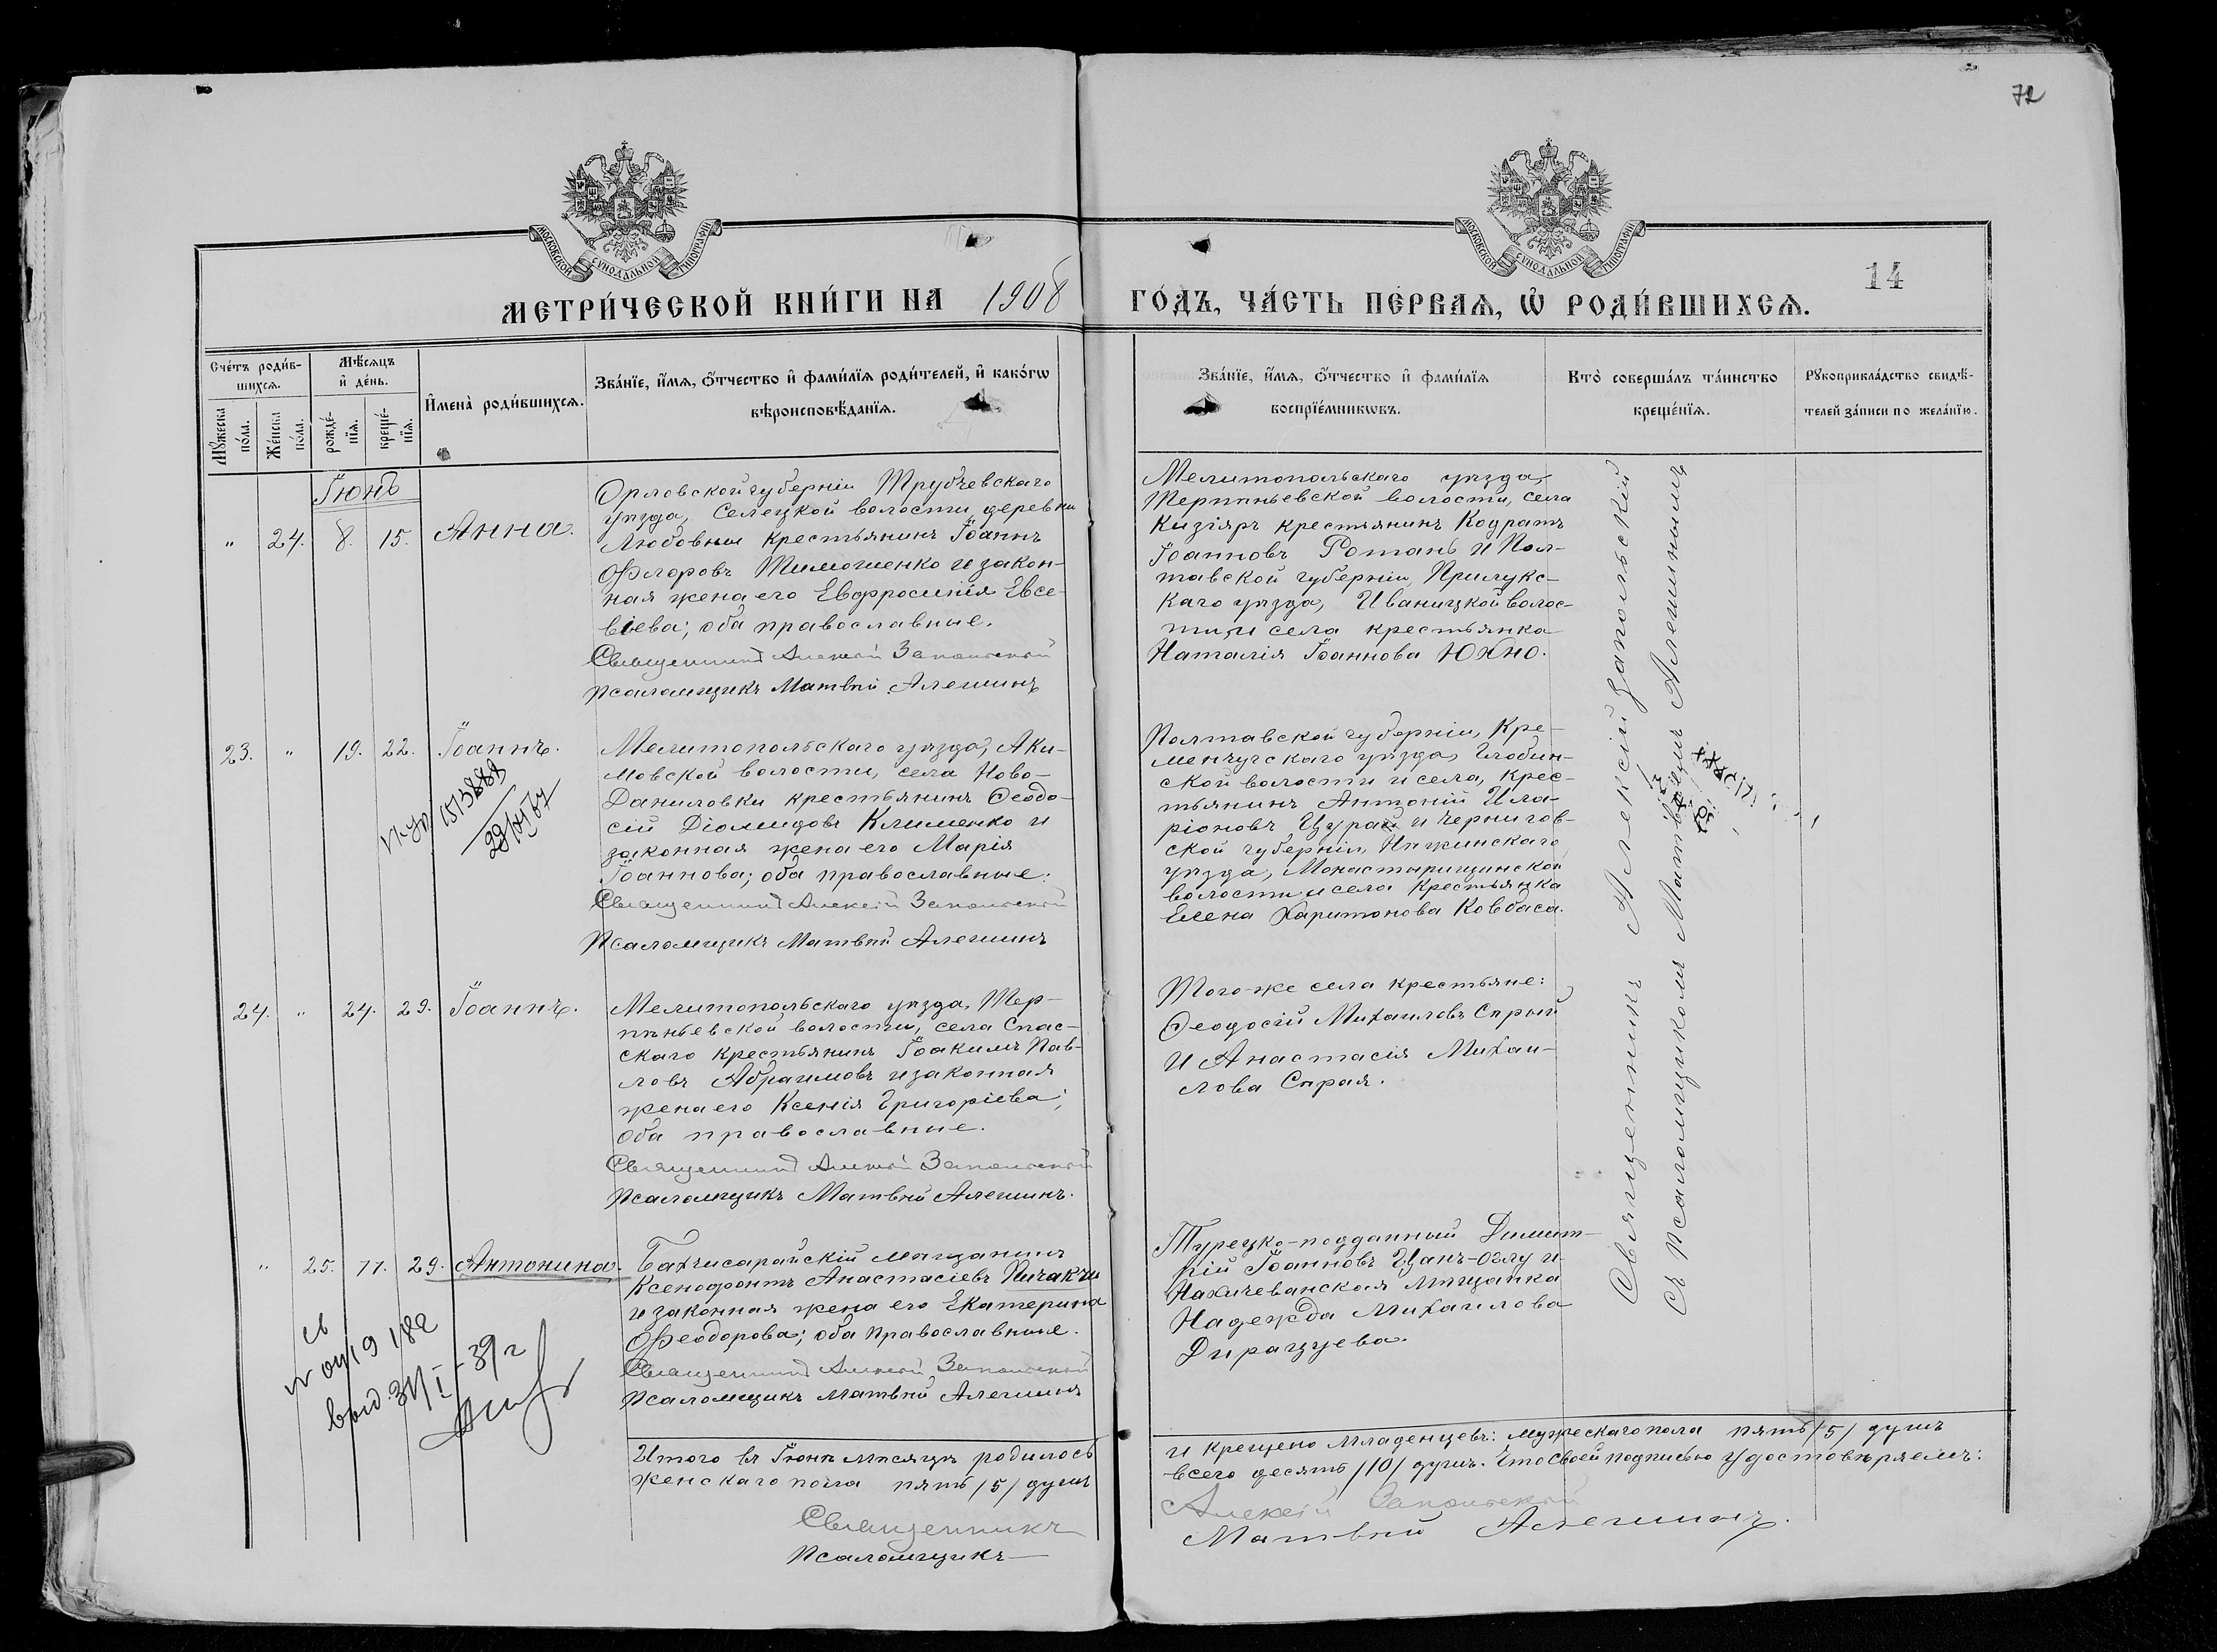 72
14
МОСКОВСКОЙ СУНОДАЛЬНОЙ ТИПОГРАФІИ
МОСКОВСКОЙ СУНОДАЛЬНОЙ ТИПОГРАФІИ
МЕТРИ́ЧЕСКОЙ КНИ́ГИ НА 1908 ГО́ДЪ, ЧА́СТЬ ПЕ́РВАѦ, Ѡ҆ РОДИ́ВШИХСѦ.
Сче́тъ роди́в-
шихсѧ.
Мѣ́сѧцъ
и҆ де́нь.
Мꙋ́жеска
по́ла.
Же́нска
по́ла.
рожде́-
нїѧ.
креще́-
нїѧ.
И҆мена̀ роди́вшихсѧ.
Зва́нїе, и҆́мѧ, ѻ҆́тчество и҆ фами́лїѧ роди́телей, и҆ како́гѡ
вѣроисповѣ́данїѧ.
Зва́нїе, и҆́мѧ, ѻ҆́тчество и҆ фами́лїѧ
воспрїе́мникѡвъ.
Кто̀ соверша́лъ та́инство
креще́нїѧ.
Рꙋкоприкла́дство свидѣ́-
телей за́писи по жела́нїю.
Іюнь
" 24. 8. 15. Анна.
Орловской губерніи Трубчевскаго
уѣзда, Селецкой волости, деревни
Любовны крестьянинъ Іоаннъ
Флоровъ Тимошенко и закон-
ная жена его Евфросинія Евсе-
віева; оба православные.
Священникъ Алексій Запольскій
Псаломщикъ Матвѣй Алешинъ
Мелитопольскаго уѣзда,
Терпѣньевской волости, села
Кизіяръ крестьянинъ Кодратъ
Іоанновъ Ротань и Пол-
тавской губерніи, Прилукс-
каго уѣзда, Иваницкой волос-
ти и села крестьянка
Наталія Іоаннова Юхно.
23. " 19. 22. Іоаннъ.
Мелитопольскаго уѣзда, Аки-
мовской волости, села Ново-
Даниловки крестьянинъ Ѳеодо-
сій Діомидовъ Клименко и
законная жена его Марія
Іоаннова; оба православные.
Священникъ Алексій Запольскій
Псаломщикъ Матвѣй Алешинъ
Полтавской губерніи, Кре-
менчугскаго уѣзда, Глобин-
ской волости и села, крес-
тьянинъ Антоній Ила-
ріоновъ Цурай и Чернигов-
ской губерніи, Нѣжинскаго
уѣзда, Монастырищинской
волости и села крестьянка
Елена Харитонова Ковбаса.
24. " 24. 29. Іоаннъ.
Мелитопольскаго уѣзда, Тер-
пѣньевской волости, села Спас-
скаго крестьянинъ Іоакимъ Пав-
ловъ Абрамовъ и законная
жена его Ксенія Григоріева;
оба православные.
Священникъ Алексій Запольскій
Псаломщикъ Матвѣй Алешинъ.
Того-же села крестьяне:
Ѳеодосій Михаиловъ Спрый
и Анастасія Михаи-
лова Спрая.
" 25. 11. 29. Антонина.
Бахчисарайскій мѣщанинъ
Ксенофонтъ Анастасіевъ Пичакчи
и законная жена его Екатерина
Ѳеодорова; оба православные.
Священникъ Алексій Запольскій
Псаломщикъ Матвѣй Алешинъ
Турецко-подданный Димит-
рій Іоанновъ Цанъ-Оглу и
Нахичеванская мѣщанка
Надежда Михаилова
Дирацуева.
выд. 31/I-39 г
Священникъ Алексій Запольскій
Съ Псаломщикомъ Матвѣемъ Алешинымъ
Итого въ Іюнѣ мѣсяцѣ родилось
женскаго пола пять /5/ душъ
и крещено младенцевъ: мужескаго пола пять /5/ душъ
всего десять /10/ душъ. Что своей подписью удостовѣряемъ:
Священникъ Алексій Запольскій
Псаломщикъ Матвѣй Алешинъ.